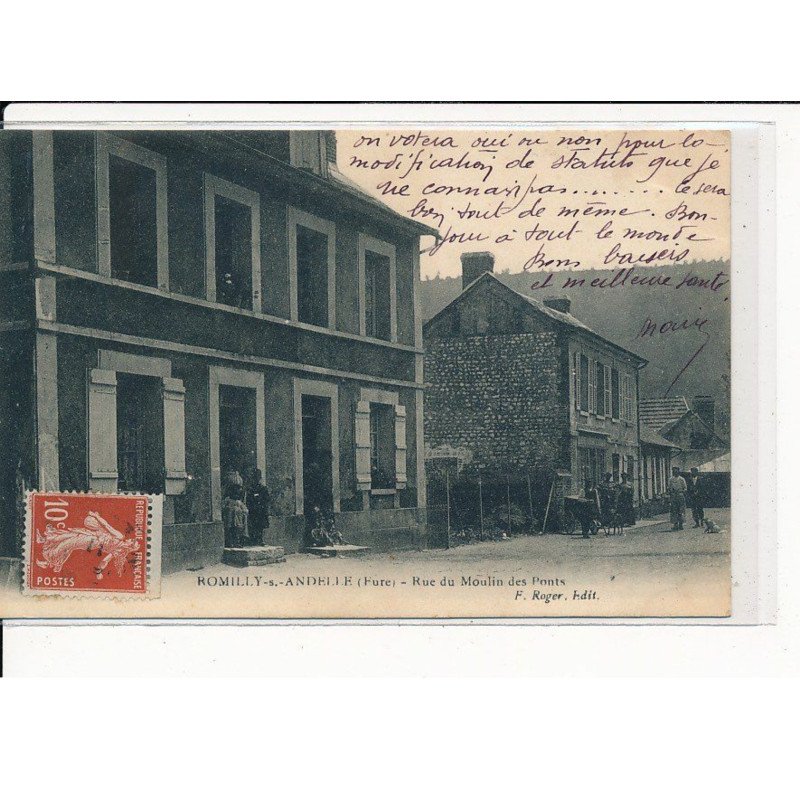 on votera oui ou non pour la
modification de statuts que je
ne connais pas........ Ce sera
bien tout de même. Bon-
jour à tout le monde
Bons baisers
et meilleure santé.
10c
POSTES
REPUBLIQUE FRANÇAISE
ROMILLY-s.-ANDELLE (Eure) - Rue du Moulin des Ponts
F. Roger, Edit.